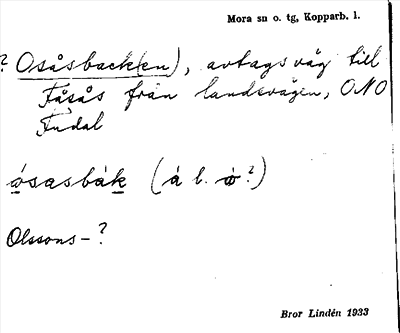 Mora sn o. tg, Kopparb. l.
? Osåsback(en), avtagsväg till
Fåsås från landsvägen, ONO
Fudal
ósasbàk (á l. ò?)
Olssons-?
Bror Lindén 1933